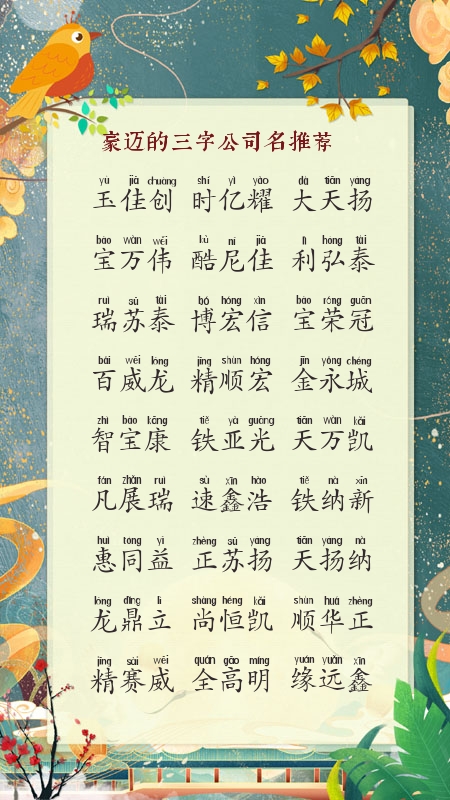 豪迈的三字公司名推荐
yù jiā chuàng shí yì yào dà tiān yáng
玉佳创 时亿耀 大天扬
bǎo wàn wěi kù ní jiā lì hóng tài
宝万伟 酷尼佳 利弘泰
ruì sū tài bó hóng xìn bǎo róng guān
瑞苏泰 博宏信 宝荣冠
bǎi wēi lóng jīng shùn hóng jīn yǒng chéng
百威龙 精顺宏 金永城
zhì bǎo kāng tiě yà guāng tiān wàn kǎi
智宝康 铁亚光 天万凯
fán zhǎn ruì sù xīn hào tiě nà xīn
凡展瑞 速鑫浩 铁纳新
huì tóng yì zhèng sū yáng tiān yáng nà
惠同益 正苏扬 天扬纳
lóng dǐng lì shàng héng kǎi shùn huá zhèng
龙鼎立 尚恒凯 顺华正
jīng sài wēi quán gāo míng yuán yuǎn xīn
精赛威 全高明 缘远鑫